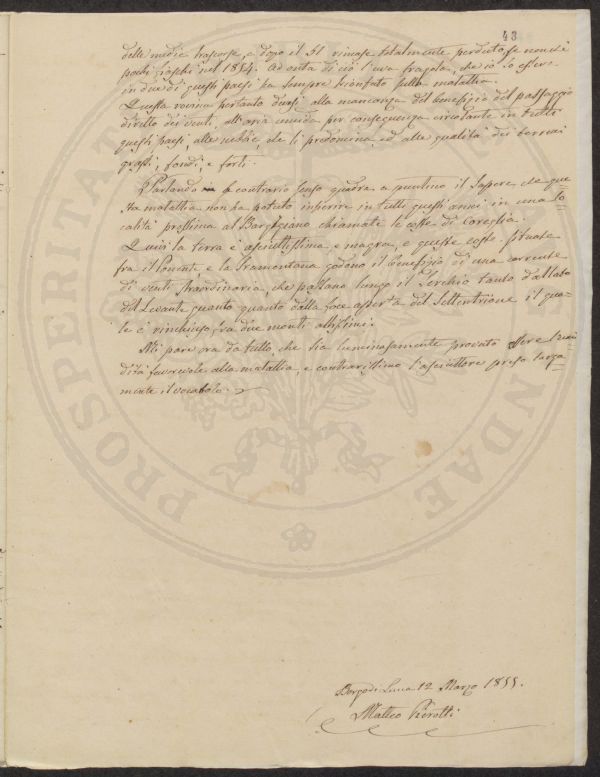 43
delle medie trascorse, e dopo il 51 rimase totalmente perduto, se non chè
pochi fiaschi nel 1854. Ad onta di ciò l'uva fragola, che io lo essere
in due di questi paesi ha sempre trionfato sulla malattia.
Questa rovina pertanto darsi alla mancanza del beneficio del passaggio
diretto dei venti, all'aria umida per conseguenza circolante in tutti
questi paesi, alle nebbie, che li predomina, ed alle qualità dei terreni
grassi, fondi, e forti.
Parlando in contrario senso quadra a puntino il sapere, che que-
sta malattia non ha potuto inferire in tutti questi anni in una lo-
calità prossima al Borghigiano chiamate le coste di Coreglia.
Quivi la terra è asciuttissima e magra, e queste coste situate
fra il Ponente e la Tramontana godono il beneficio di una corrente
di venti straordinaria, che passano lungo il Serchio tanto dal lato
del Levante quanto quanto dalla foce aperta del Settentrione il qua-
le è rinchiuso fra due monti altissimi.
Mi pare ora da tutto, che sia luminosamente provato essere l'umi
dità favorevole alla malattia, e contrarissimo l'asciuttore preso larga-
mente il vocabolo.
Borgo di Lucca 12 Marzo 1855.
Matteo Pierotti
PROSPERITATI
AUGENDAE